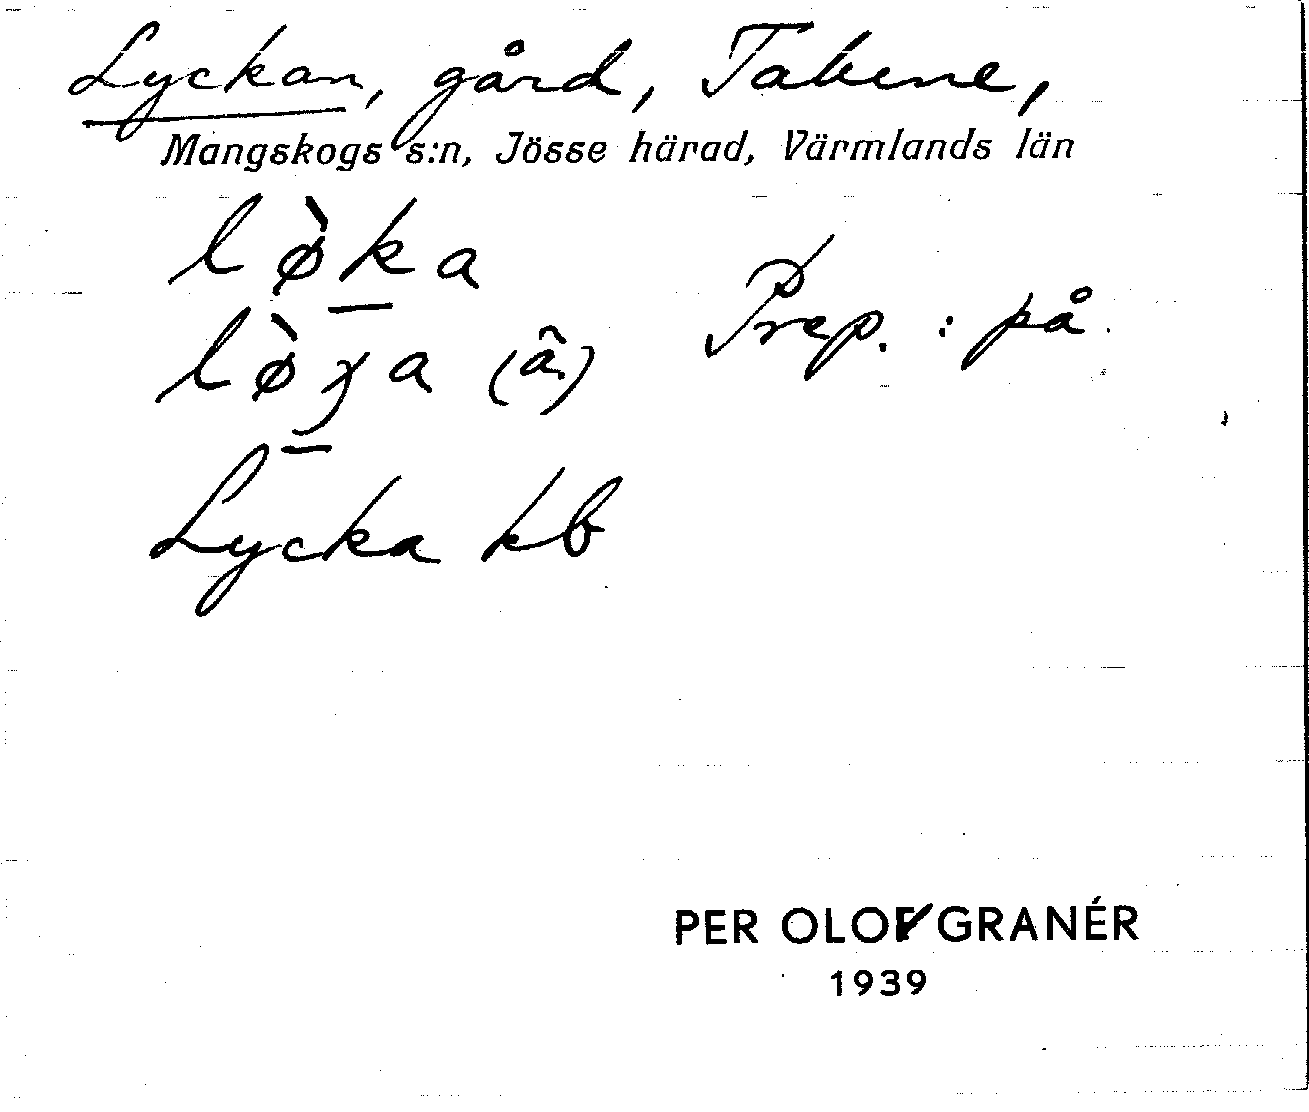 Lyckan, gård, Takene,
Mangskogs s:n, Jösse härad, Värmlands län
lø̀ka
lø̀ʒa (â)
Prep. : på
Lycka kb
PER OLOF GRANÉR
1939